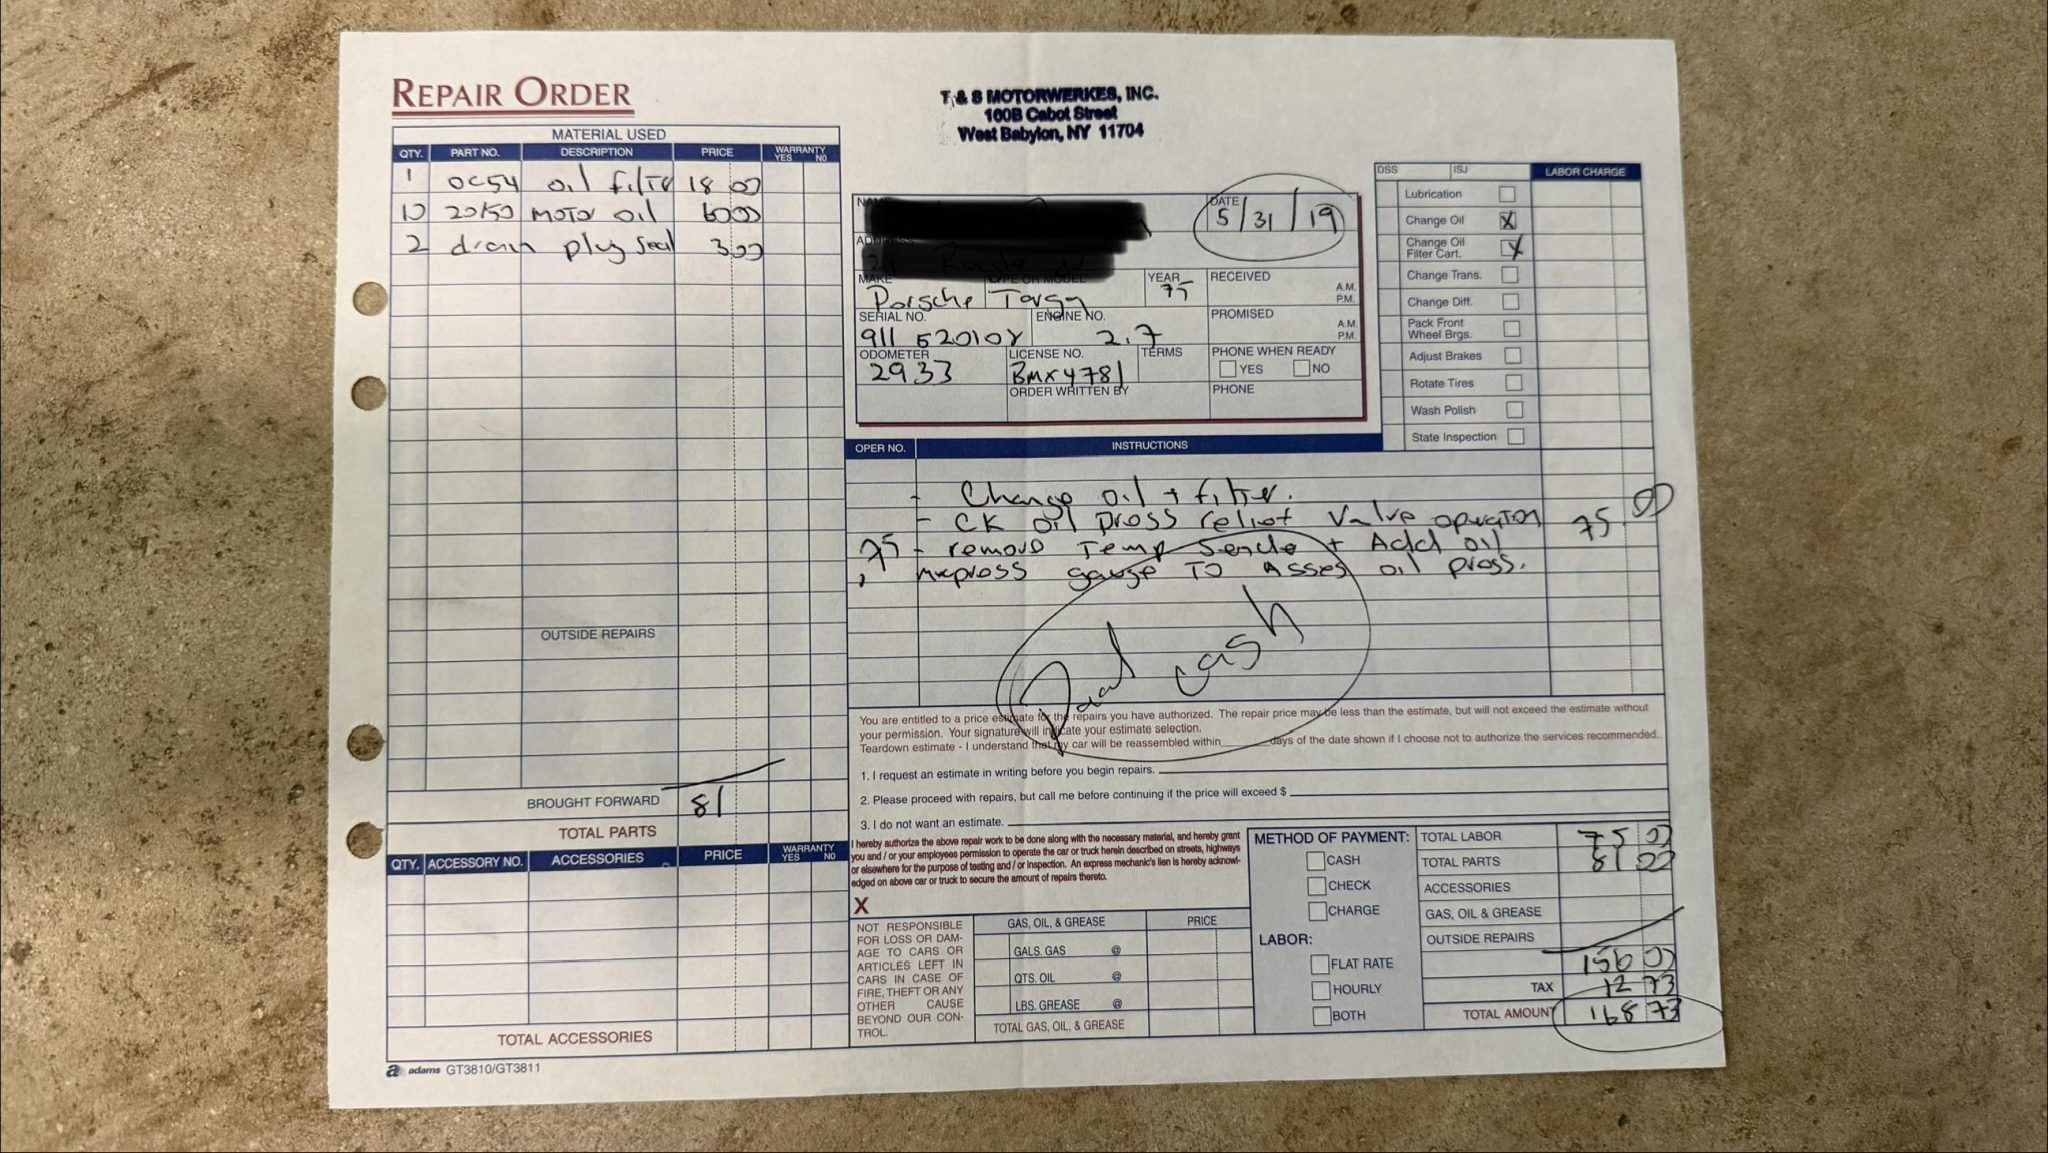 REPAIR ORDER
T & S MOTORWERKES, INC.
160B Cabot Street
West Babylon, NY 11704
MATERIAL USED
QTY. PART NO. DESCRIPTION PRICE WARRANTY YES NO
1 OC54 oil filter 18 00
10 20/50 MOTOR oil 60 00
2 drain plug seal 3 00
OUTSIDE REPAIRS
BROUGHT FORWARD 81
TOTAL PARTS
QTY. ACCESSORY NO. ACCESSORIES PRICE WARRANTY YES NO
TOTAL ACCESSORIES
a adams GT3810/GT3811
NAME
DATE
5/31/19
ADDRESS
MAKE TYPE OR MODEL YEAR RECEIVED A.M. P.M.
Porsche Targa 75
SERIAL NO. ENGINE NO. PROMISED A.M. P.M.
911 2.7
ODOMETER LICENSE NO. TERMS PHONE WHEN READY
2933 BMX4781 YES NO
ORDER WRITTEN BY PHONE
DSS ISJ LABOR CHARGE
Lubrication
Change Oil X
Change Oil
Filter Cart. X
Change Trans.
Change Diff.
Pack Front
Wheel Brgs.
Adjust Brakes
Rotate Tires
Wash Polish
State Inspection
OPER NO. INSTRUCTIONS
- Change oil + filter.
- CK oil press relief valve operation 75.00
.75 - remove Temp + Add oil
press gauge TO Asses oil press.
Paid cash
You are entitled to a price estimate for the repairs you have authorized. The repair price may be less than the estimate, but will not exceed the estimate without
your permission. Your signature will indicate your estimate selection.
Teardown estimate - I understand that my car will be reassembled within days of the date shown if I choose not to authorize the services recommended.
1. I request an estimate in writing before you begin repairs.
2. Please proceed with repairs, but call me before continuing if the price will exceed $
3. I do not want an estimate.
I hereby authorize the above repair work to be done along with the necessary material, and hereby grant
you and / or your employees permission to operate the car or truck herein described on streets, highways
or elsewhere for the purpose of testing and / or inspection. An express mechanic's lien is hereby acknowl-
edged on above car or truck to secure the amount of repairs thereto.
X
NOT RESPONSIBLE
FOR LOSS OR DAM-
AGE TO CARS OR
ARTICLES LEFT IN
CARS IN CASE OF
FIRE, THEFT OR ANY
OTHER CAUSE
BEYOND OUR CON-
TROL.
GAS, OIL, & GREASE PRICE
GALS. GAS @
QTS. OIL @
LBS. GREASE @
TOTAL GAS, OIL, & GREASE
METHOD OF PAYMENT:
CASH
CHECK
CHARGE
LABOR:
FLAT RATE
HOURLY
BOTH
TOTAL LABOR 75 00
TOTAL PARTS 81 00
ACCESSORIES
GAS, OIL & GREASE
OUTSIDE REPAIRS
156 00
TAX 12 73
TOTAL AMOUNT 168 73